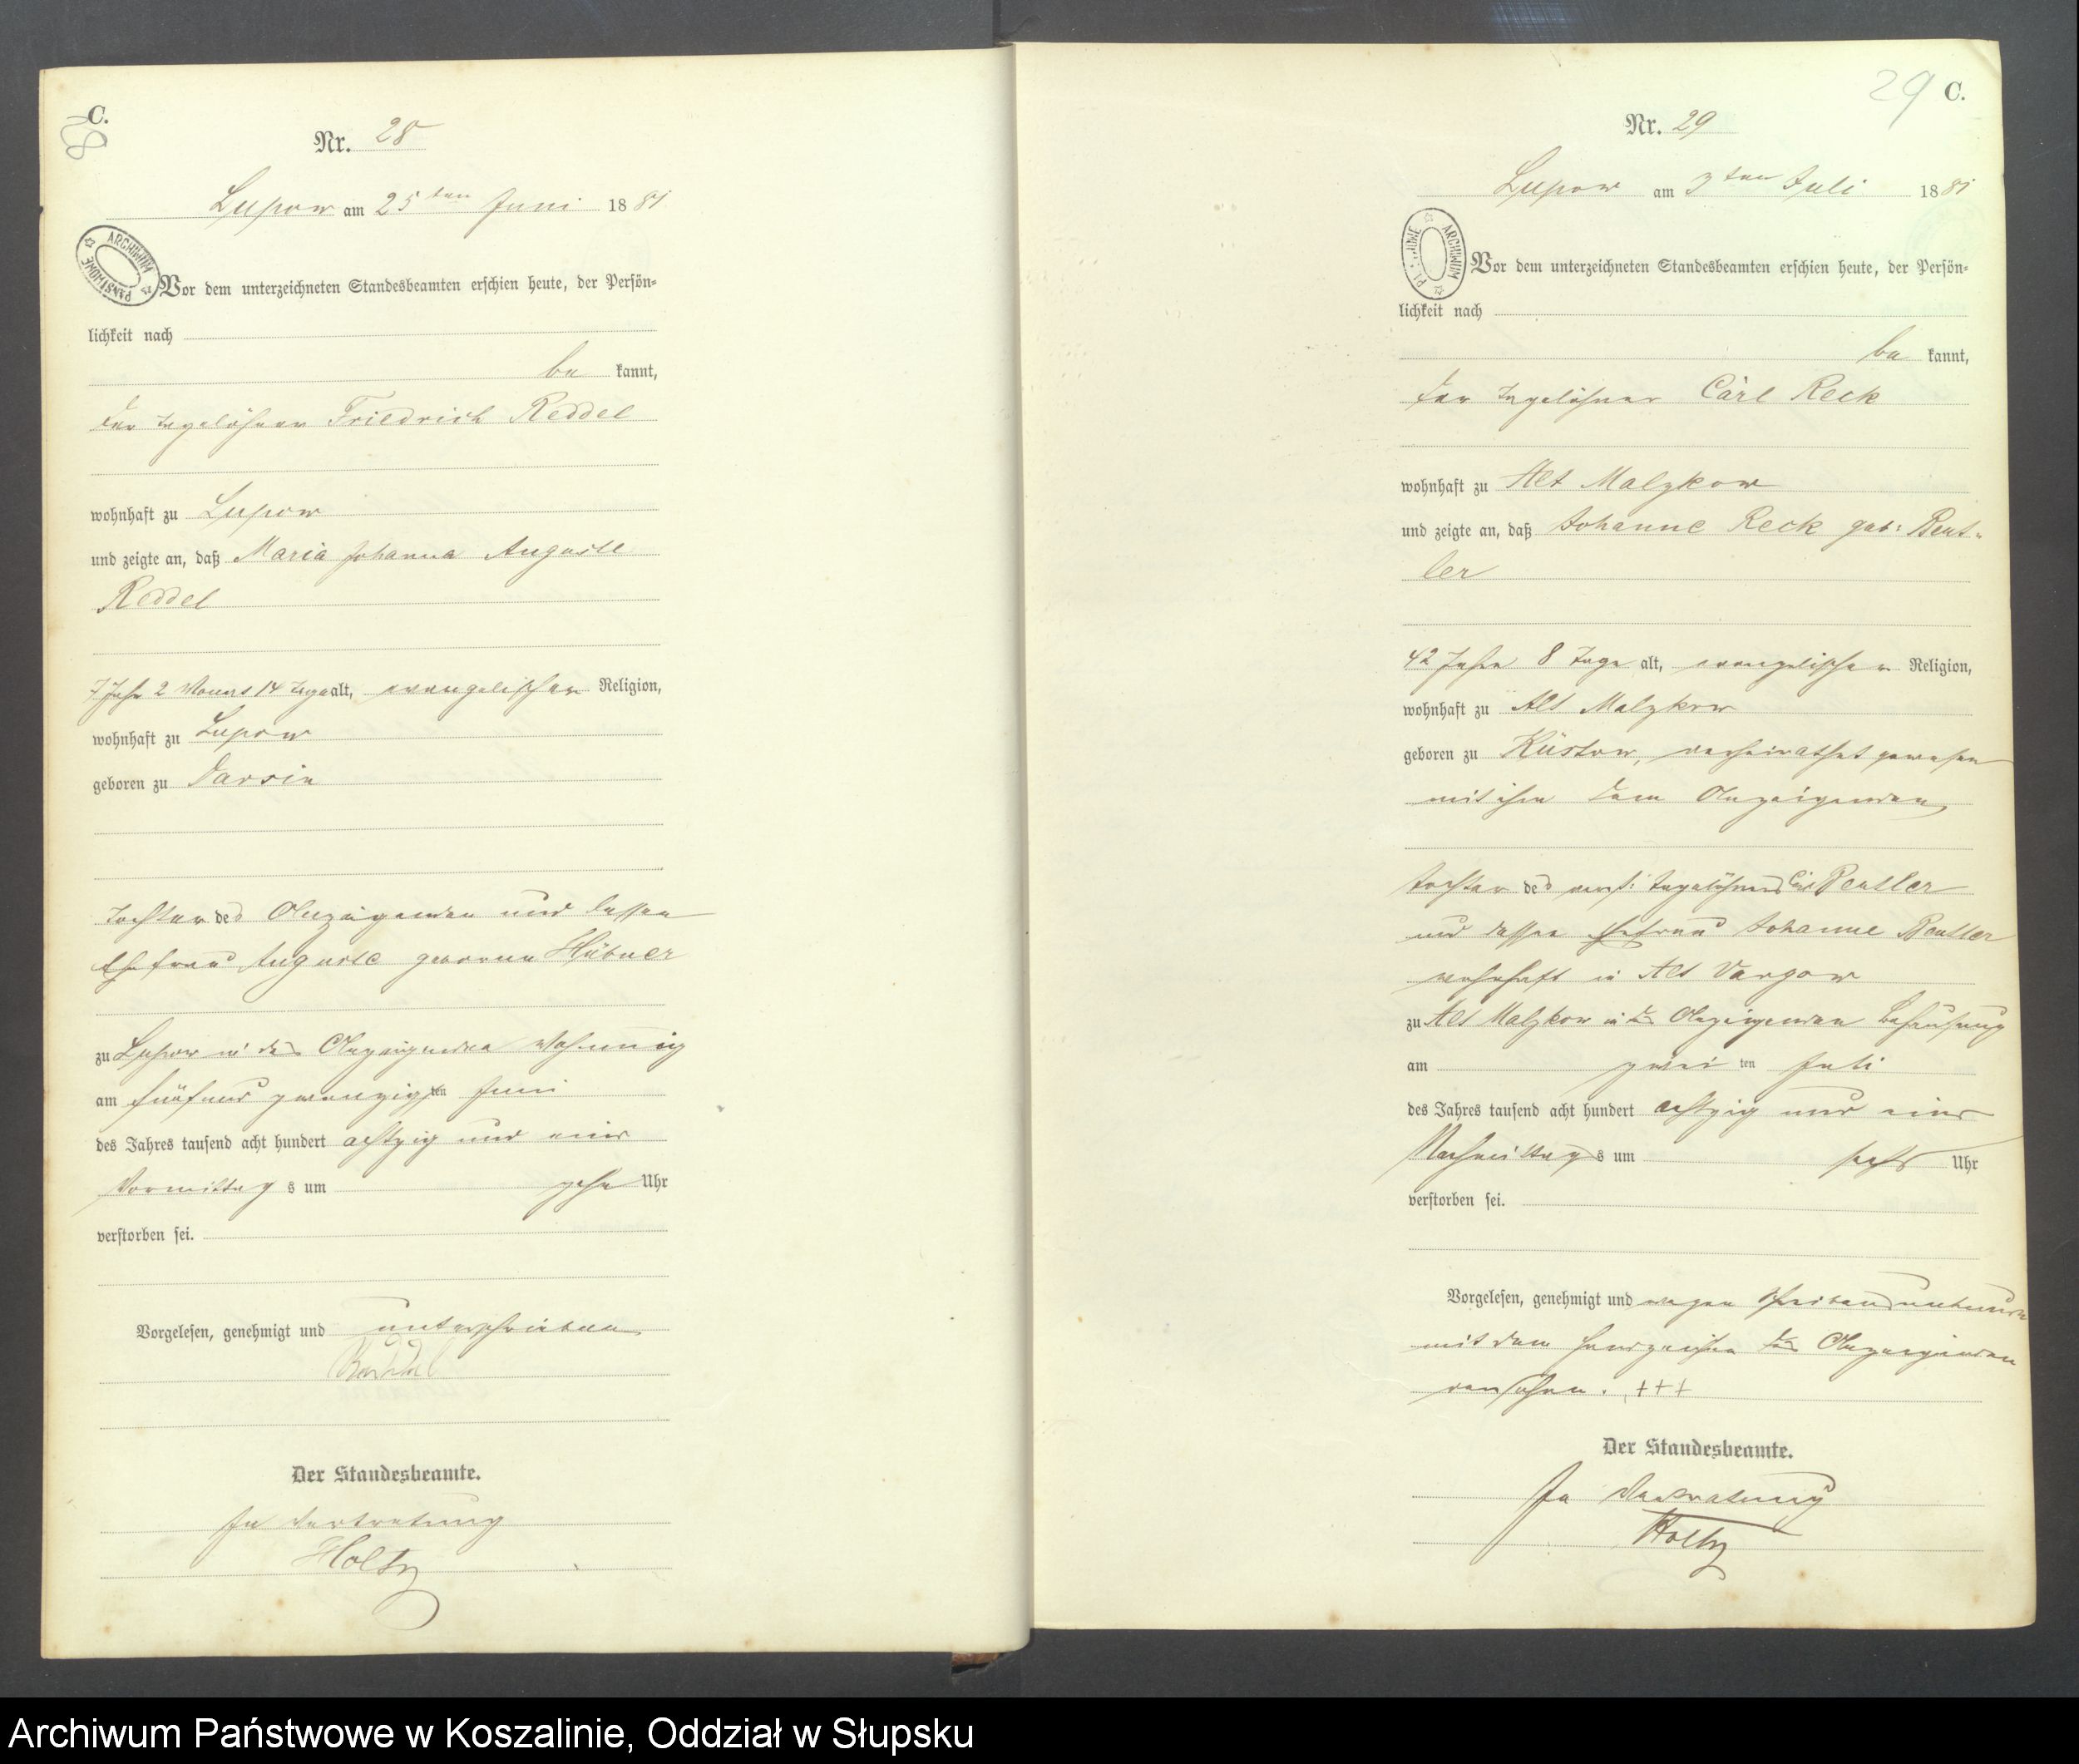 C.
28
Nr. 28
Lupow am 25ten Juni 1881
ARCHIWUM PAŃSTWOWE
Vor dem unterzeichneten Standesbeamten erschien heute, der Persön-
lichkeit nach
be kannt,
der Tagelöhner Friedrich Reddel
wohnhaft zu Lupow
und zeigte an, daß Maria Johanna Auguste
Reddel
7 Jahr 2 Monat 14 Tage alt, evangelischer Religion,
wohnhaft zu Lupow
geboren zu Darsin
Tochter des Anzeigenden und dessen
Ehefrau Auguste geborene Hübner
zu Lupow in des Anzeigenden Wohnung
am fünfund zwanzigsten Juni
des Jahres tausend acht hundert achtzig und eins
Vormittag s um zehn Uhr
verstorben sei.
Vorgelesen, genehmigt und unterschrieben
Reddel
Der Standesbeamte.
In Vertretung
Holtz
29 C.
Nr. 29
Lupow am 3ten Juli 1881
ARCHIWUM
Vor dem unterzeichneten Standesbeamten erschien heute, der Persön-
lichkeit nach
be kannt,
der Tagelöhner Carl Reck
wohnhaft zu Alt Malzkow
und zeigte an, daß Johanne Reck geb: Peut-
ler
42 Jahre 8 Tage alt, evangelischer Religion,
wohnhaft zu Alt Malzkow
geboren zu Küssow, verheirathet gewesen
mit ihm dem Anzeigenden,
Tochter des verst: Tagelöhners Peutler
und dessen Ehefrau Johanne Peutler
wohnhaft in Alt Vargow
zu Alt Malzkow in des Anzeigenden Behausung
am zwei ten Juli
des Jahres tausend acht hundert achtzig und eins
Nachmittag s um sechs Uhr
verstorben sei.
Vorgelesen, genehmigt und wegen Schreibensunkunde
mit dem Handzeichen des Anzeigenden
versehen. +++
Der Standesbeamte.
In Vertretung
Holtz
Archiwum Państwowe w Koszalinie, Oddział w Słupsku